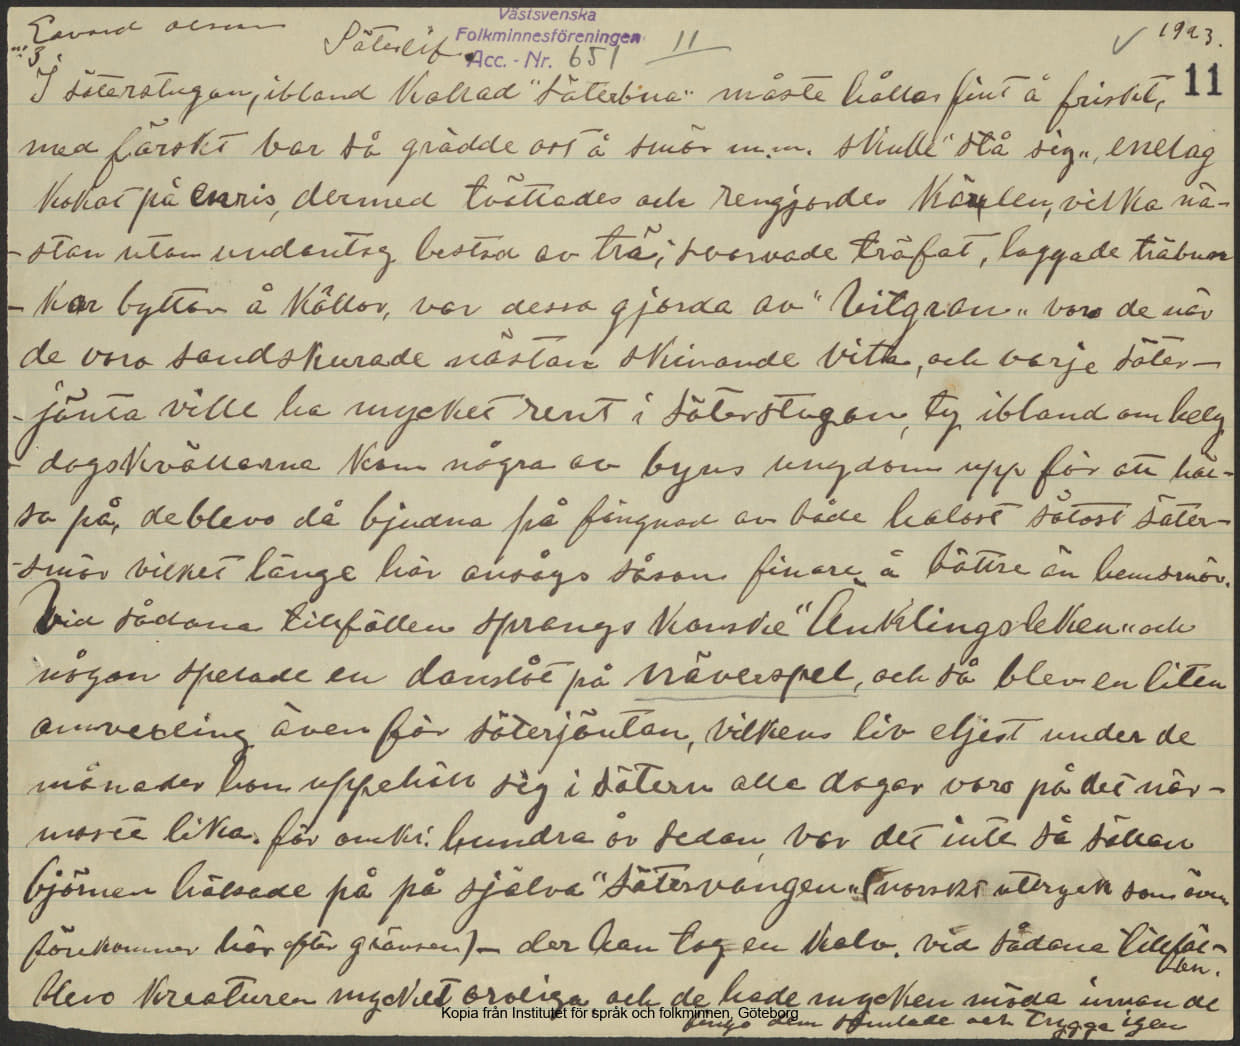 Edvard Olsson
Västsvenska
Folkminnesföreningen
Acc. - Nr. 651 II
1923.
11
nr 3
Säterlif.
I säterstugan, ibland kallad "Säterbua" måste hållas fint å friskt,
med färskt bar så grädde ost å smör m.m. skulle "stå sig", enelag
kokat på enris, dermed tvättades och rengjordes kärlen, vilka nä-
-stan utan undantag bestod av trä, svarvade träfat, laggade träbun
-kar byttor å kållor, var dessa gjorda av "Vitgran" voro de när
de voro sandskurade nästan skinande vita, och varje säter-
-jänta ville ha mycket rent i säterstugan, ty ibland om helg
-dagskvällarna kom några av byns ungdom upp för att häl-
sa på, de blevo då bjudna på fängnad av både kalost sötost säter-
-smör vilket länge här ansågs såsom finare å bättre än hemsmör.
Vid sådana tillfällen sprangs kanske "Änklingsleken" och
någon spelade en danslåt på näverspel, och så blev en liten
omvexling även för säterjäntan, vilkens liv eljest under de
månader hon uppehöll sig i sätern alla dagar voro på det när-
maste lika. för omkr. hundra år sedan, var det inte så sällan
björnen hälsade på på själva "Sätervangen" (norskt uttryck som även
förekommer här efter gränsen) - der han tog en kalv. vid sådana tillfäl-
len.
blevo kreaturen mycket oroliga och de hade mycken möda innan de
fingo dem samlade och trygga igen
Kopia från Institutet för språk och folkminnen, Göteborg